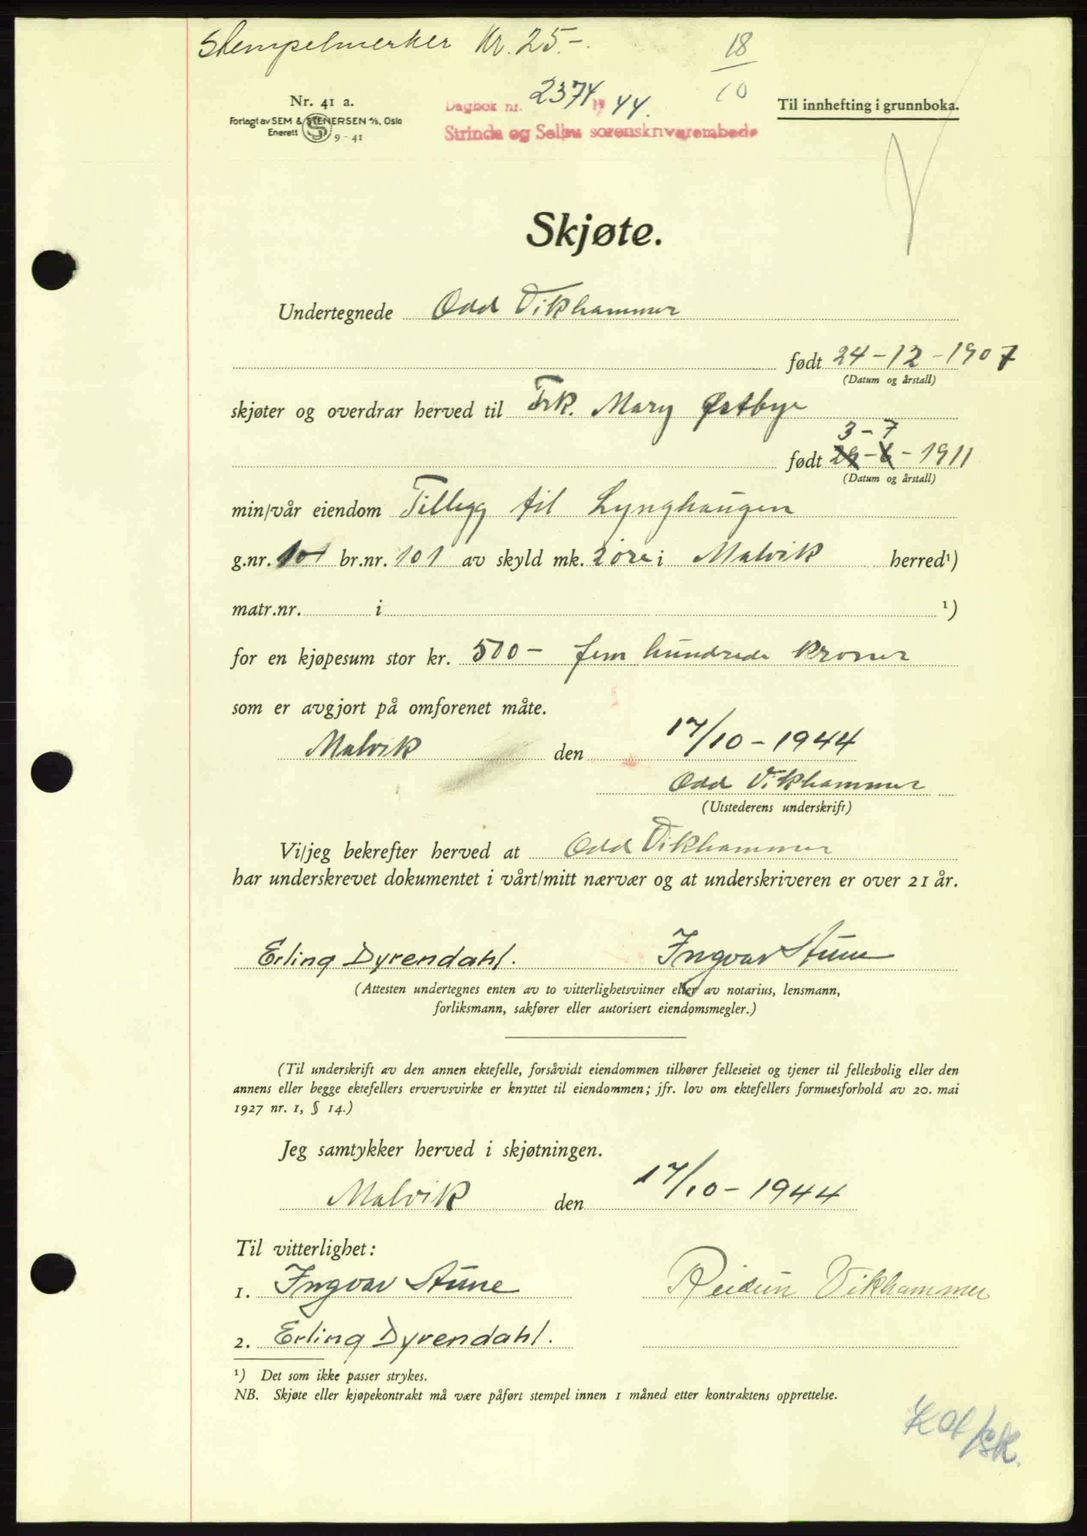 Stempelmerker Kr. 25.-.
18/10
Nr. 41 a.
Forlagt av SEM & STENERSEN A/S, Oslo
Enerett S 9-41
Dagbok nr. 2374 19 44.
Strinda og Selbu sorenskriverembede
Til innhefting i grunnboka.
Skjøte.
Undertegnede Odd Vikhammer
født 24-12-1907
(Datum og årstall)
skjøter og overdrar herved til Frk. Mary Østbye
3-7
født 29-6-1911
(Datum og årstall)
min/vår eiendom Tillegg til Lynghaugen
g.nr. br.nr. 101 av skyld mk. 2 øre i Malvik herred¹)
matr.nr. i ¹)
for en kjøpesum stor kr. 500- fem hundrede kroner
som er avgjort på omforenet måte.
Malvik den 17/10-1944
Odd Vikhammer
(Utstederens underskrift)
Vi/jeg bekrefter herved at Odd Vikhammer
har underskrevet dokumentet i vårt/mitt nærvær og at underskriveren er over 21 år.
Erling Dyrendahl. Ingvar Stune
(Attesten undertegnes enten av to vitterlighetsvitner eller av notarius, lensmann,
forliksmann, sakfører eller autorisert eiendomsmegler.)
(Til underskrift av den annen ektefelle, forsåvidt eiendommen tilhører felleseiet og tjener til fellesbolig eller den
annens eller begge ektefellers ervervsvirke er knyttet til eiendommen; jfr. lov om ektefellers formuesforhold av 20. mai
1927 nr. 1, § 14.)
Jeg samtykker herved i skjøtningen.
Malvik den 17/10-1944
Til vitterlighet:
1. Ingvar Stune Reidun Vikhammer
2. Erling Dyrendahl.
¹) Det som ikke passer strykes.
NB. Skjøte eller kjøpekontrakt må være påført stempel innen 1 måned etter kontraktens opprettelse.